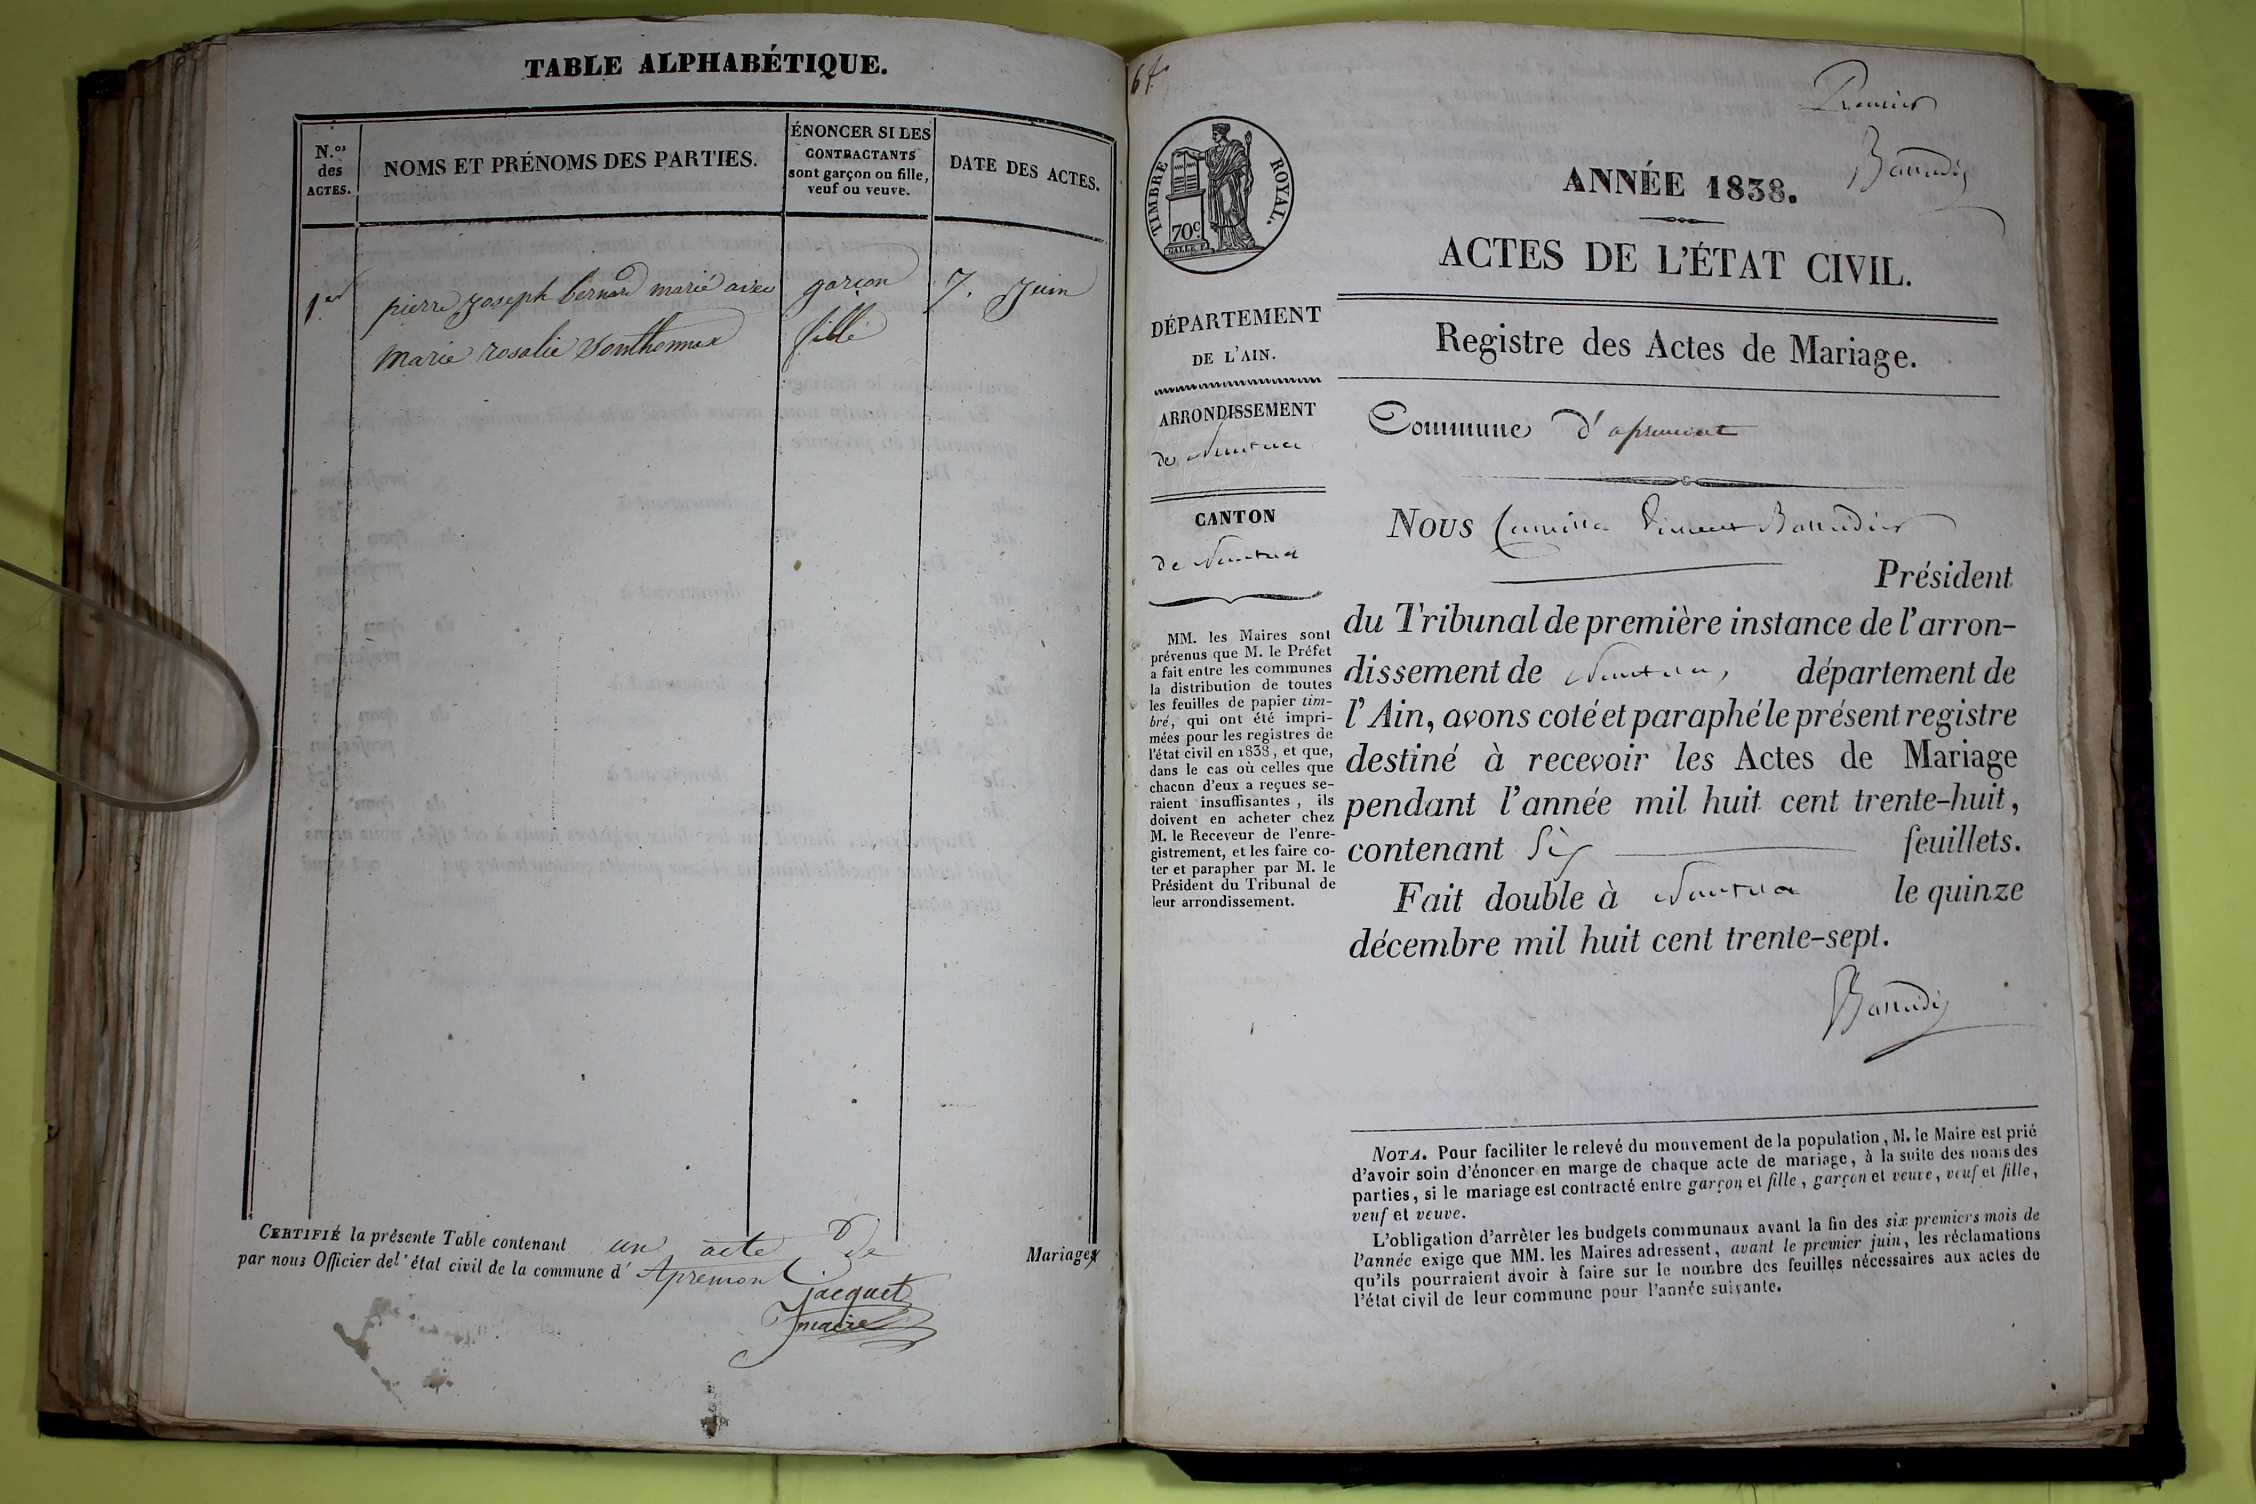 TABLE ALPHABÉTIQUE.
N.os
des
ACTES.
NOMS ET PRÉNOMS DES PARTIES.
ÉNONCER SI LES
CONTRACTANTS
sont garçon ou fille,
veuf ou veuve.
DATE DES ACTES.
1er pierre joseph bernard marié avec garçon 7. Juin
marie rosalie fille
CERTIFIÉ la présente Table contenant un acte de Mariages
par nous Officier de l'état civil de la commune d' Apremont
jacquet
maire
64
Premier
ANNÉE 1838.
TIMBRE ROYAL.
70c.
ACTES DE L'ÉTAT CIVIL.
Registre des Actes de Mariage.
DÉPARTEMENT
DE L'AIN.
ARRONDISSEMENT
de Nantua
CANTON
de Nantua
MM. les Maires sont
prévenus que M. le Préfet
a fait entre les communes
la distribution de toutes
les feuilles de papier tim-
bré, qui ont été impri-
mées pour les registres de
l'état civil en 1838, et que,
dans le cas où celles que
chacun d'eux a reçues se-
raient insuffisantes, ils
doivent en acheter chez
M. le Receveur de l'enre-
gistrement, et les faire co-
ter et parapher par M. le
Président du Tribunal de
leur arrondissement.
Commune d'apremont
Nous Camille Vincent
Président
du Tribunal de première instance de l'arron-
dissement de Nantua, département de
l'Ain, avons coté et paraphé le présent registre
destiné à recevoir les Actes de Mariage
pendant l'année mil huit cent trente-huit,
contenant Six feuillets.
Fait double à Nantua le quinze
décembre mil huit cent trente-sept.
NOTA. Pour faciliter le relevé du mouvement de la population, M. le Maire est prié
d'avoir soin d'énoncer en marge de chaque acte de mariage, à la suite des noms des
parties, si le mariage est contracté entre garçon et fille, garçon et veuve, veuf et fille,
veuf et veuve.
L'obligation d'arrêter les budgets communaux avant la fin des six premiers mois de
l'année exige que MM. les Maires adressent, avant le premier juin, les réclamations
qu'ils pourraient avoir à faire sur le nombre des feuilles nécessaires aux actes de
l'état civil de leur commune pour l'année suivante.